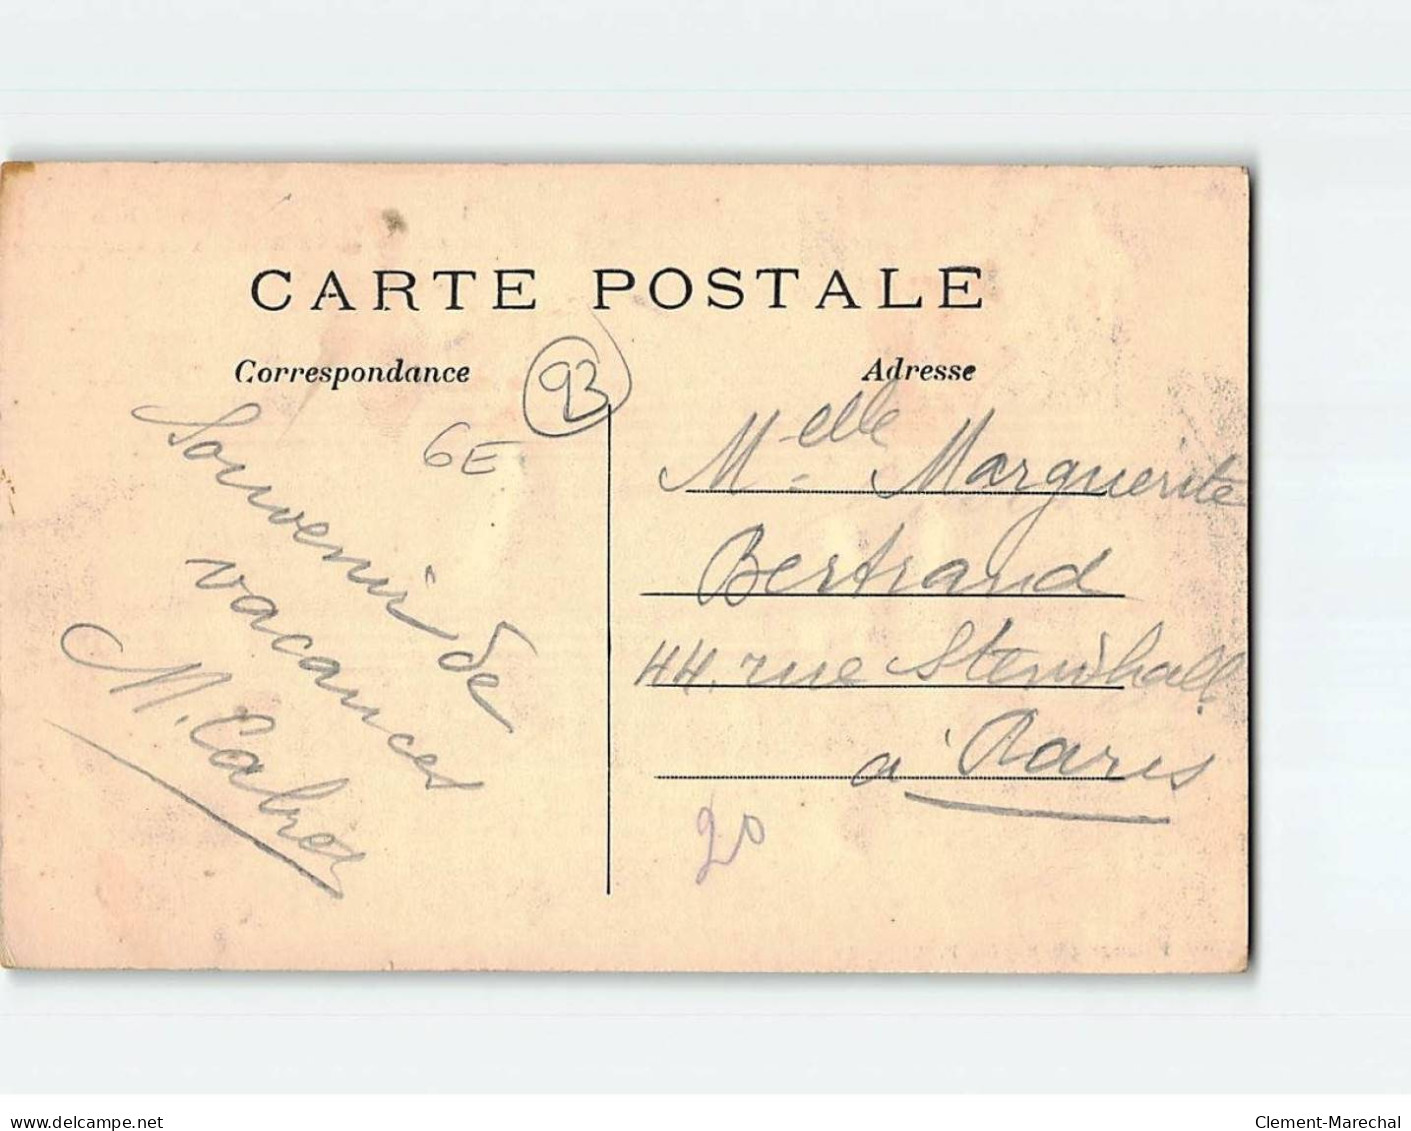 CARTE POSTALE
Correspondance
Adresse
93
6E
Souvenir de
vacances
M.elle Marguerite
Bertrand
44, rue
à Paris
20
www.delcampe.net
Clement-Marechal